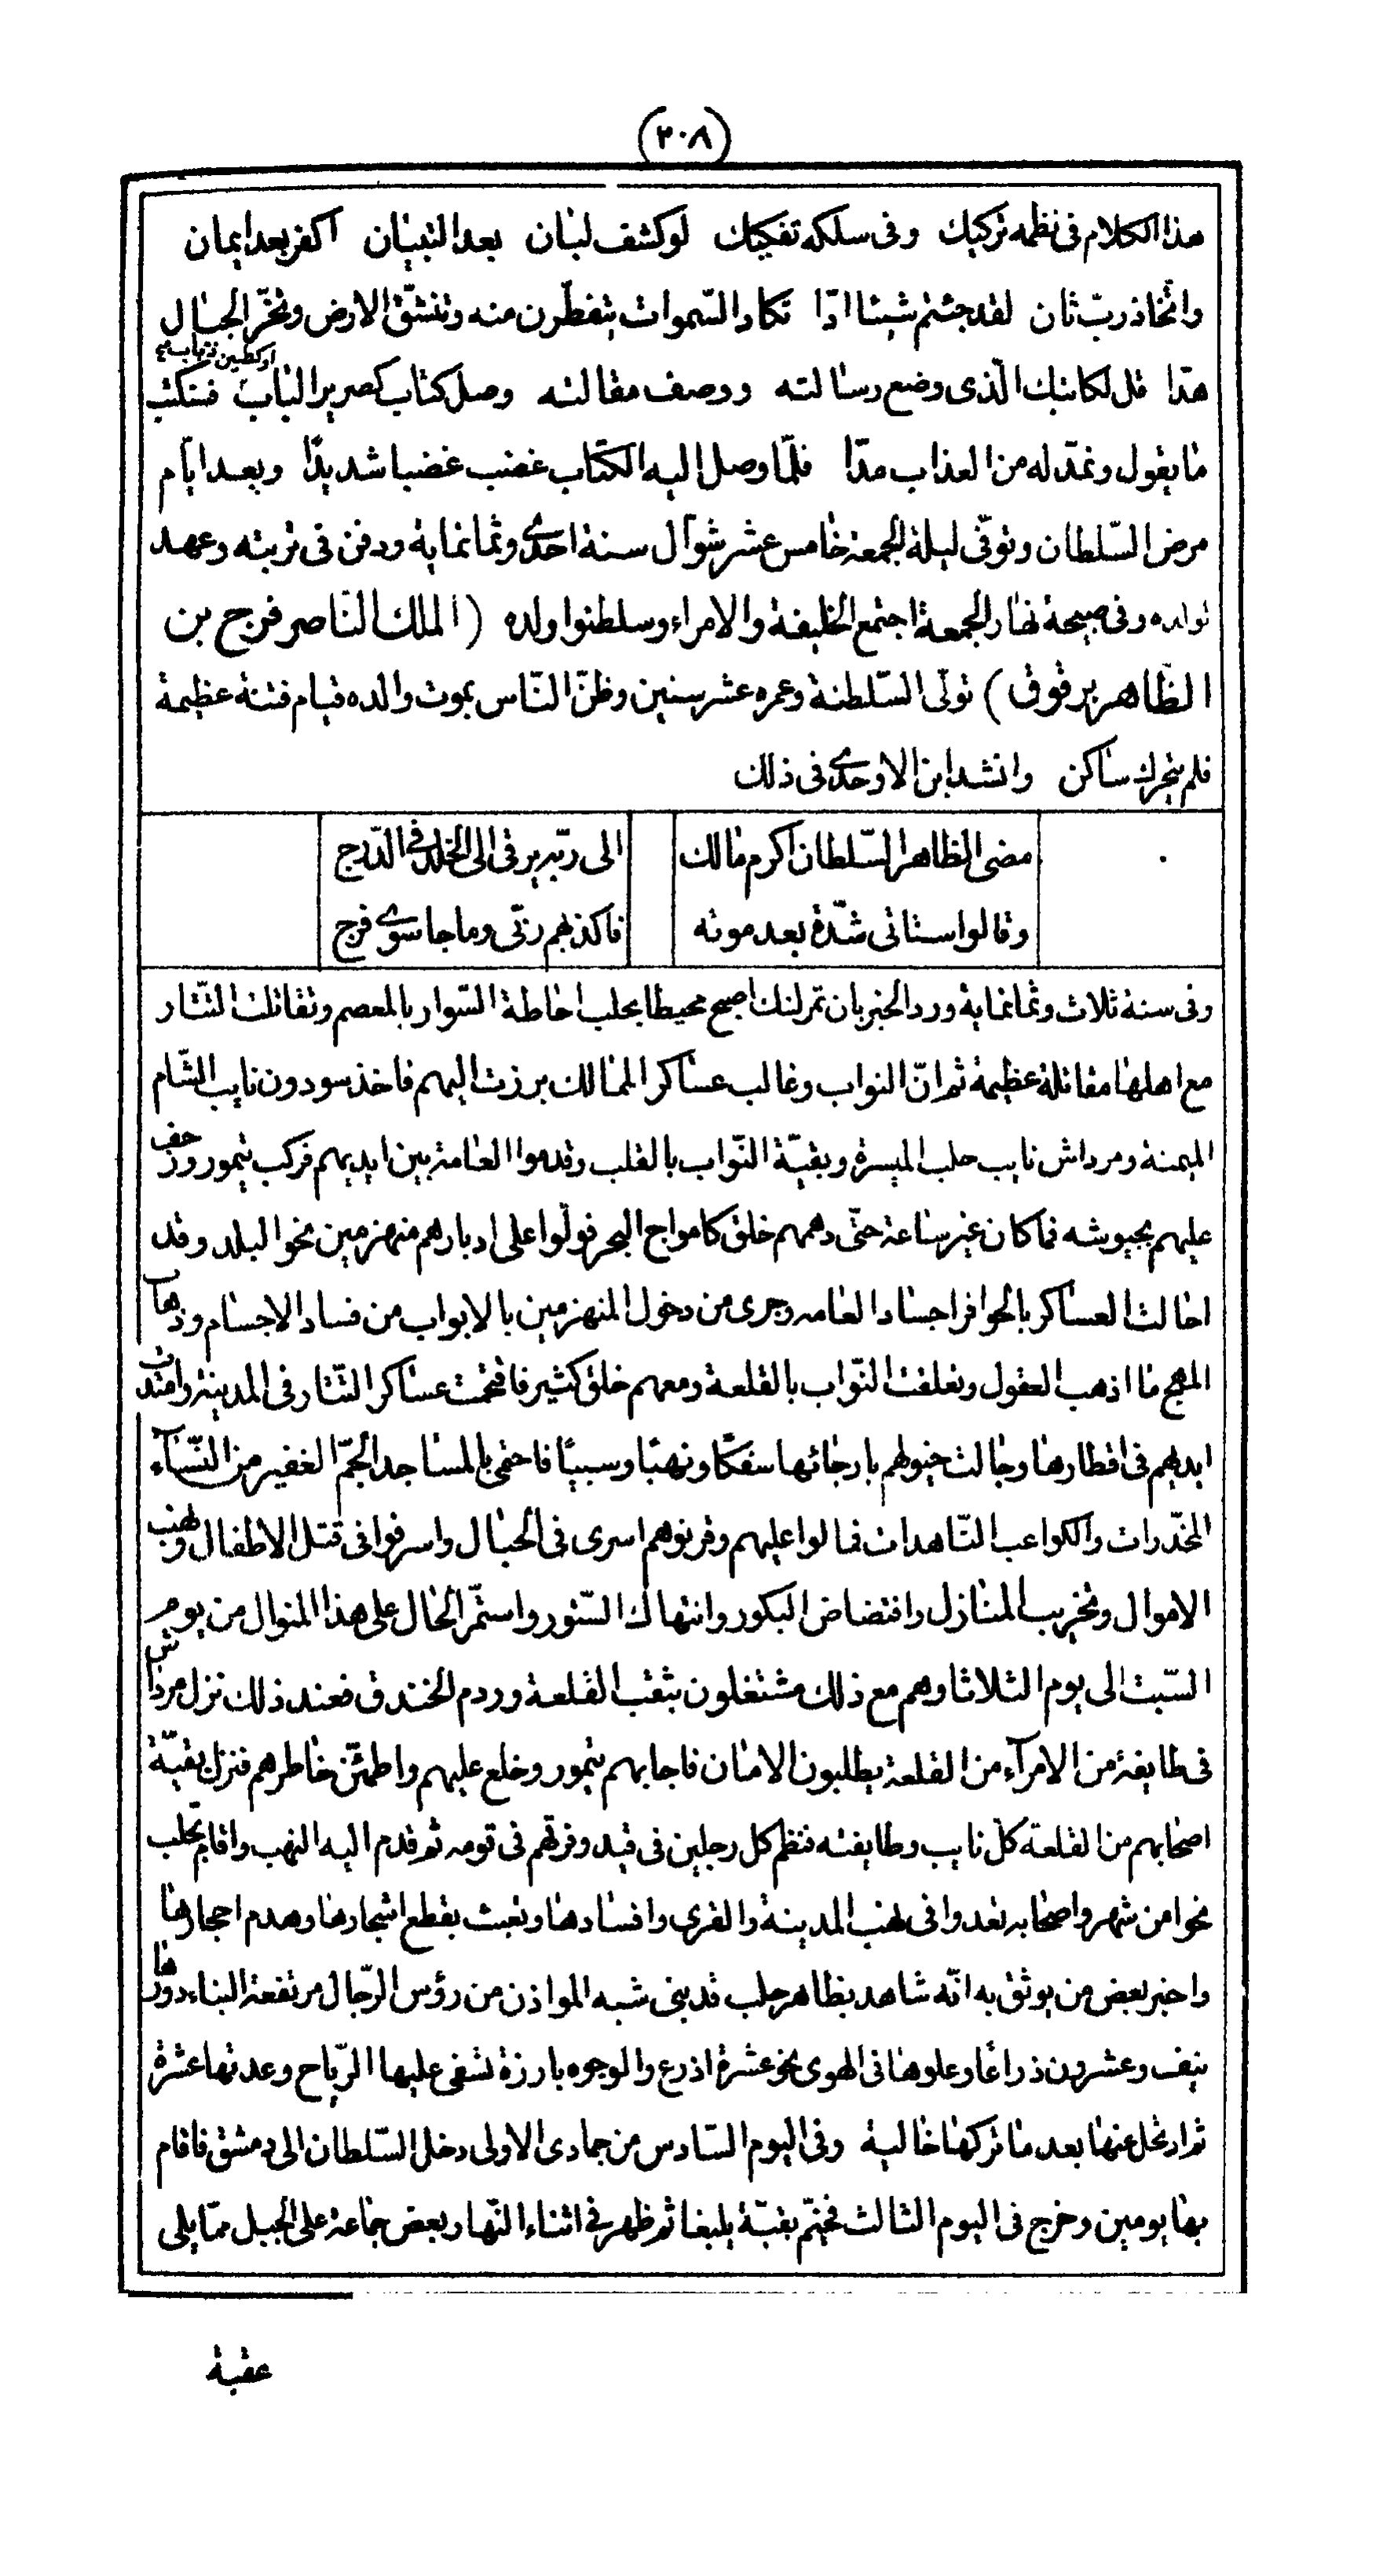 (٢٠٨)
هذا الكلام فى نظمه تركيك وفى سلكه تفكيك لو كشف لبان بعد التبيان أكفر بعد ايمان
واتّخاذ ربّ ثان لقد جئتم شيئا ادّا تكاد السّموات يتفطّرن منه وتنشقّ الارض وتخرّ الجبال
هدّا قل لكاتبك الّذى وضع رسالته ووصف مقالته وصل كتاب كصرير الباب فسنكتب
او كطنين ذباب
ما يقول ونمدّ له من العذاب مدّا فلمّا وصل اليه الكتاب غضب غضبا شديدًا وبعد ايّام
مرض السّلطان وتوفّى ليلة الجمعة خامس عشر شوّال سنة احدى وثمانماية ودفن فى تربته وعهد
لولده وفى صبيحة نهار الجمعة اجتمع الخليفة والامراء وسلطنوا ولده (الملك النّاصر فرج بن
الظّاهر برقوق) تولّى السّلطنة وعمره عشر سنين وظنّ النّاس بموت والده قيام فتنة عظيمة
فلم يتحرك ساكن وانشد ابن الاوحدى فى ذلك
مضى الظاهر السّلطان اكرم مالك الى ربّه يرقى الى الخلد فى الدّرج
وقالوا ستاتى شدّة بعد موته فاكذبهم ربّى وما جا سوى فرج
وفى سنة ثلاث وثمانماية ورد الخبر بان تمرلنك اصبح محيطا بحلب احاطة السّوار بالمعصم وتقاتلت التتار
مع اهلها مقاتلة عظيمة ثم انّ النواب وغالب عساكر الممالك برزت اليهم فاخذ سودون نايب الشّام
الميمنة ومرداش نايب حلب الميسرة وبقيّة النّواب بالقلب وقدموا العامة بين ايديهم فركب تيمور وزحف
عليهم بجيوشه فما كان غير ساعة حتّى دهمهم خلق كامواج البحر فولّوا على ادبارهم منهزمين نحو البلد وقد
احالت العساكر بالحوافر اجساد العامه وجرى من دخول المنهزمين بالابواب من فساد الاجسام وذهاب
المهج ما اذهب العقول وتعلقت النّواب بالقلعة ومعهم خلق كثير فاقتحمت عساكر التتار فى المدينة وامتدت
ايديهم فى اقطارها وجالت خيولهم بارجائها سفكًا ونهبًا وسبيًا فاحتمى بالمساجد الجمّ الغفير من النّساء
المخدّرات والكواعب النّاهدات فمالوا عليهم وقرنوهم اسرى فى الحبال واسرفوا فى قتل الاطفال ونهب
الاموال وتخريب المنازل وافتضاض البكور وانتهاك السّتور واستمرّ الحال على هذا المنوال من يوم
السّبت الى يوم الثلاثا وهم مع ذلك مشتغلون بثقب القلعة وردم الخندق فعند ذلك نزل مرداش
فى طايفة من الامرآء من القلعة يطلبون الامان فاجابهم تيمور وخلع عليهم واطمئنّ خاطرهم فنزل بقيّة
اصحابهم من القلعة كلّ نايب وطايفته فنظم كل رجلين فى قيد وفرقهم فى قومه ثم قدم اليه النهب واقام بحلب
نحوا من شهر واصحابه تغدوا فى نهب المدينة والقرى وافسادها وتعبث بقطع اشجارها وهدم احجارها
واخبر بعض من يوثق به انّه شاهد بظاهر حلب قد بنى شبه الموآذن من رؤس الرّجال مرتفعة البناء دورها
نيف وعشرون ذراعًا وعلوها فى الهوى نحو عشرة اذرع والوجوه بارزة تسفى عليها الرّياح وعدتها عشرة
ثم ارتحل عنها بعد ما تركها خالية وفى اليوم السّادس من جمادى الاولى دخل السّلطان الى دمشق فاقام
بها يومين وخرج فى اليوم الثالث فخيّم بقبّة يلبغا ثم ظهر فى اثناء النّهار بعض جماعة على الجبل ممّا يلى
عقبة